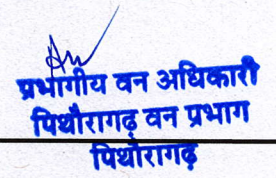 प्रभागीय वन अधिकारी
पिथौरागढ़ वन प्रभाग
पिथौरागढ़